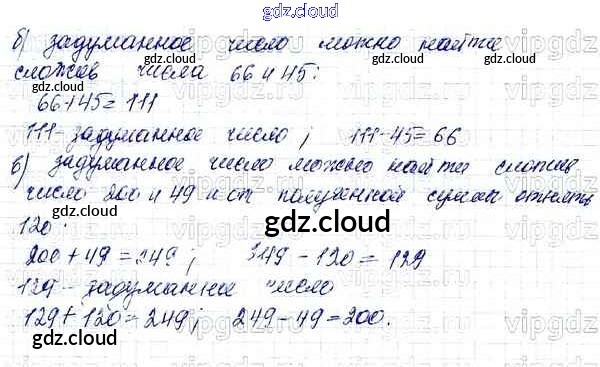 gdz.cloud
б) задуманное число можно найти
сложив числа 66 и 45:
66+45=111
111- задуманное число ; 111-45=66
в) задуманное число можно найти сложив
число 200 и 49 и от полученной суммы отнять
120.
200+49=249; 349-120=129
129- задуманное число
129+120=249; 249-49=200.
gdz.cloud
gdz.cloud
gdz.cloud
gdz.cloud
gdz.cloud
gdz.cloud
gdz.cloud